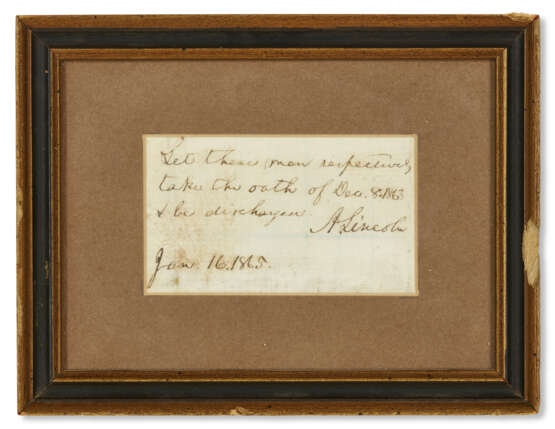 Let these men respectively
take the oath of Dec. 8. 1863
& be discharged
A. Lincoln
Jan. 16. 1865.